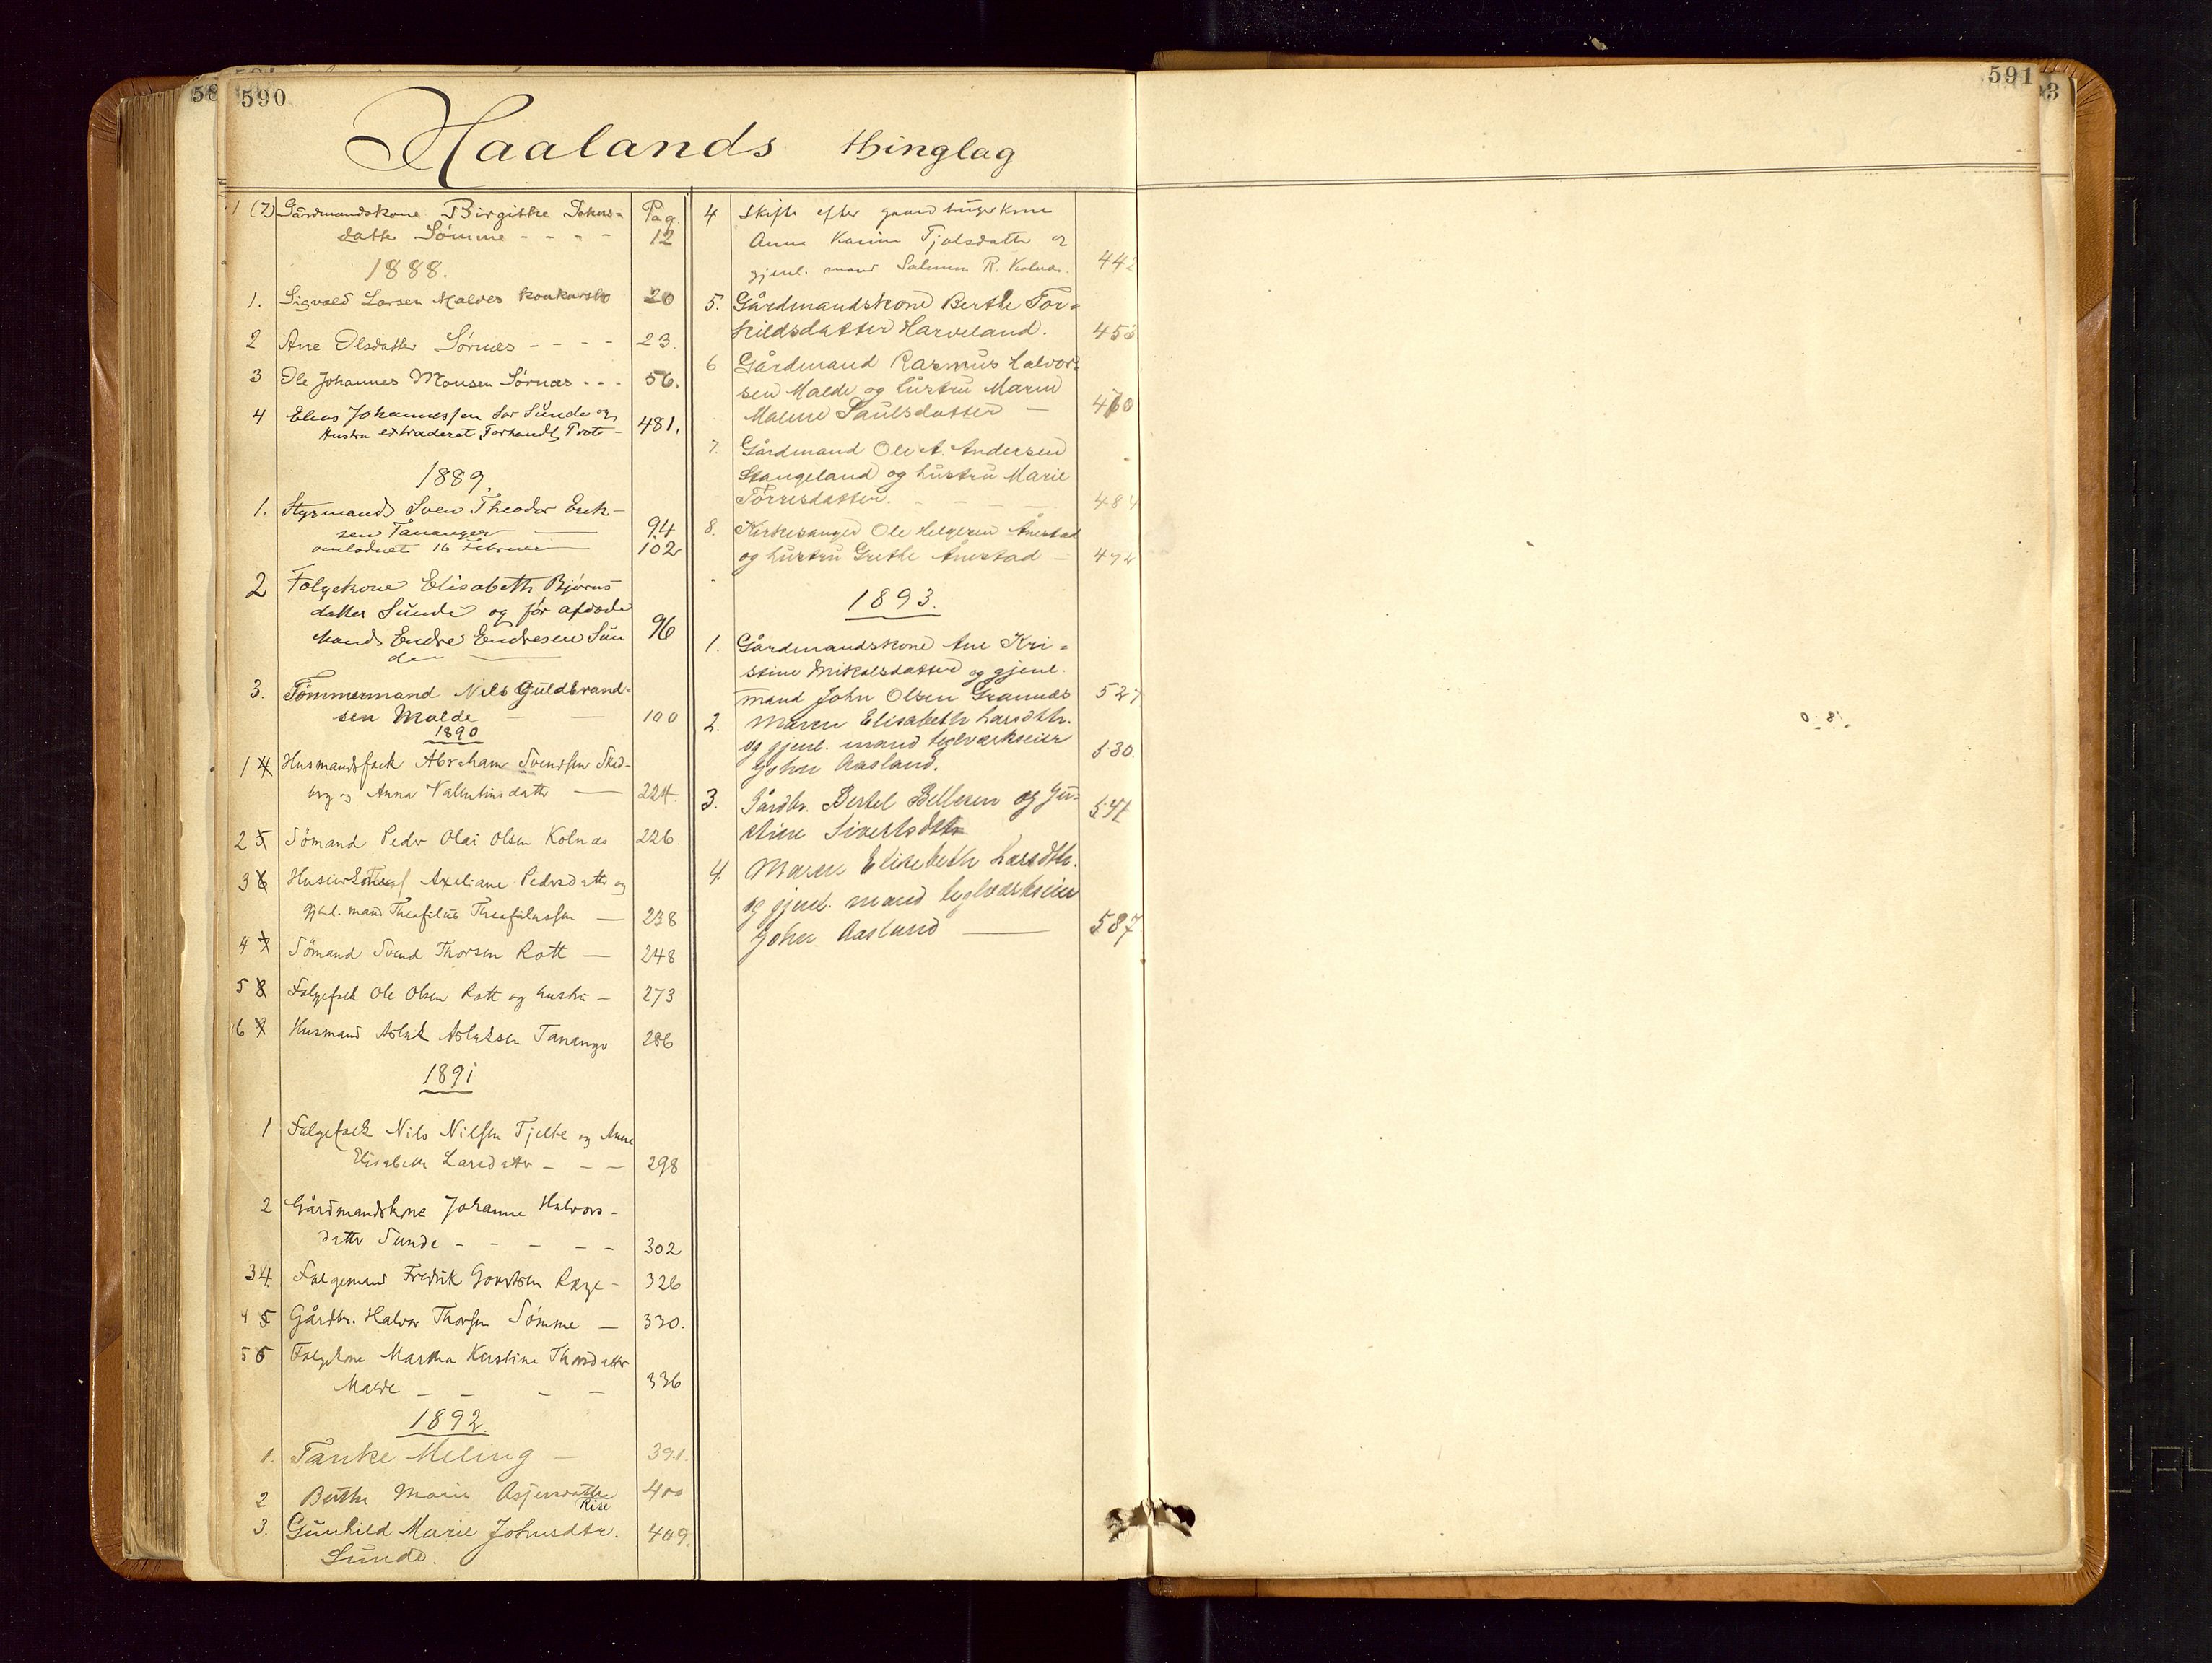 590
Haalands thinglag
1 (7) Gårdmandskone Birgitte Johns- Pag.
datter Sømme - - - - 12
1888.
1. Sigvald Larsen Maldes konkursbo 20
2 Ane Olsdatter Sørnes - - - - 23.
3 Ole Johannes Monsen Sørnæs - - - 56.
4 Elias Johannessen Sør Sunde og
Hustru extraderet Forhandl. Prot - 481.
1889.
1. Styrmand Sven Theodor Erik-
sen Tananger — 94
omlodnet 16 Februar — 102
2 Følgekone Elisabeth Bjørns
datter Sunde og før afdøde
Mand Endre Endresen Sun 96
de —
3. Tømmermand Nils Guldbrand-
sen Malde — — 100
1890
1 4 Husmandsfolk Abraham Svendsen Skad-
berg og Anna Valentinsdatter — 224.
2 5 Sømand Peder Olai Olsen Kolnæs 226.
3 6 Axeliane Pedersdatter og
gjenl. mand Theofilus Theofilussen — 238
4 7 Sømand Svend Thorsen Rott — 248
5 8 Følgefolk Ole Olsen Rott og hustru — 273
6 9 Husmand Aslak Aslaksen Tananger 286
1891
1 Følgefolk Nils Nilsen Tjelte og Anne
Elisabeth Larsdatter - - - 298
2 Gårdmandskone Johanne Halvors-
datter Sunde - - - - - 302
3 4. Følgemand Fredrik Govertsen Rege - 326
4 5 Gårdbr. Halvor Thorsen Sømme — 330.
5 6 Følgekone Martha Kirstine Thorsdatter
Malde — — — — 336
1892.
1. Tanke Meling — 391.
2 Berthe Marie Asjersdatter 400
Rise
3. Gunhild Marie Johnsdtr. 409.
Sunde.
4 Skifte efter gaardbrugerkone
Anna Karine Tjølsdatter og
gjenl. mand Salomon R. Kolnæs. 442
5. Gårdmandskone Berthe Tor-
kildsdatter Harveland. 453
6 Gårdmand Rasmus Halvor-
sen Malde og hustru Maren
Malene Paulsdatter — 460
7. Gårdmand Ole A. Andersen
Stangeland og hustru Marie
Tørresdatter. - - - 484
8. Kirkesanger Ole Helgesen Ånestad
og hustru Grethe Ånestad — 472
1893.
1. Gårdmandskone Ane Kri-
stine Mikalsdatter og gjenl.
mand John Olsen Grannes 527
2. Maren Elisabeth Larsdtr.
og gjenl. mand teglværkseier 530.
John Aasland.
3. Gårdbr. Bertel Bellesen og Gu- 541
stine Sivertsdtr
4. Maren Elisebeth Larsdtr.
og gjenl. mand teglværkseier
John Aasland — 587
591